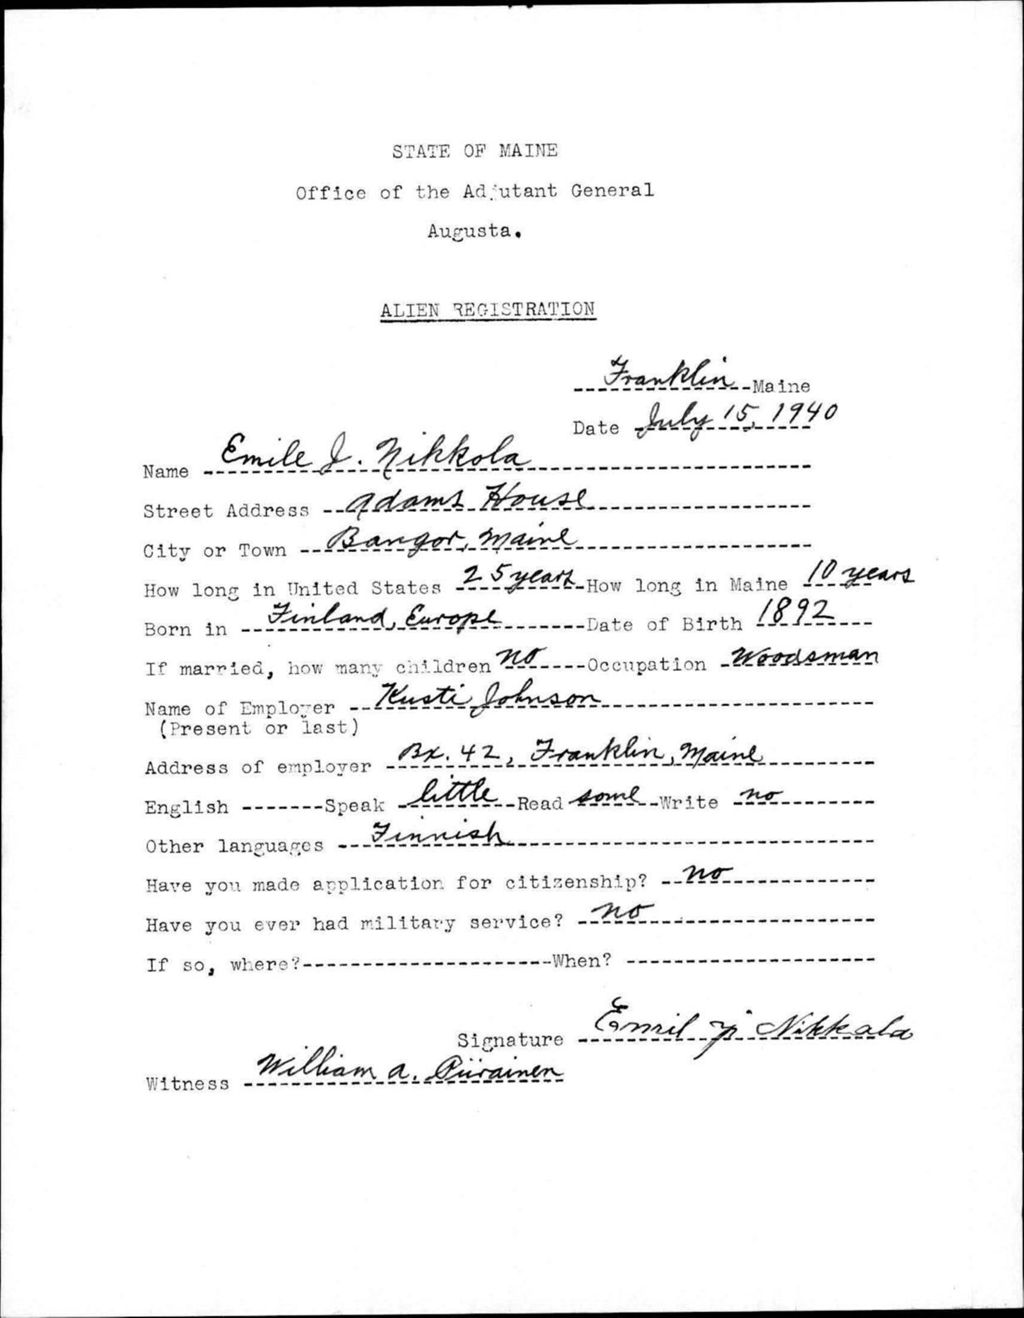 STATE OF MAINE
Office of the Adjutant General
Augusta.
ALIEN REGISTRATION
Franklin Maine
Date July 15, 1940
Name Emile J. Nikkola
Street Address Adams House
City or Town Bangor, Maine
How long in United States 25 years How long in Maine 10 years
Born in Finland, Europe Date of Birth 1892
If married, how many children no Occupation Woodsman
Name of Employer Kusti Johnson
(Present or last)
Address of employer Bx. 42, Franklin, Maine
English Speak little Read some Write no
Other languages Finnish
Have you made application for citizenship? no
Have you ever had military service? no
If so, where? When?
Signature Emil J Nikkala
Witness William A. Piirainen